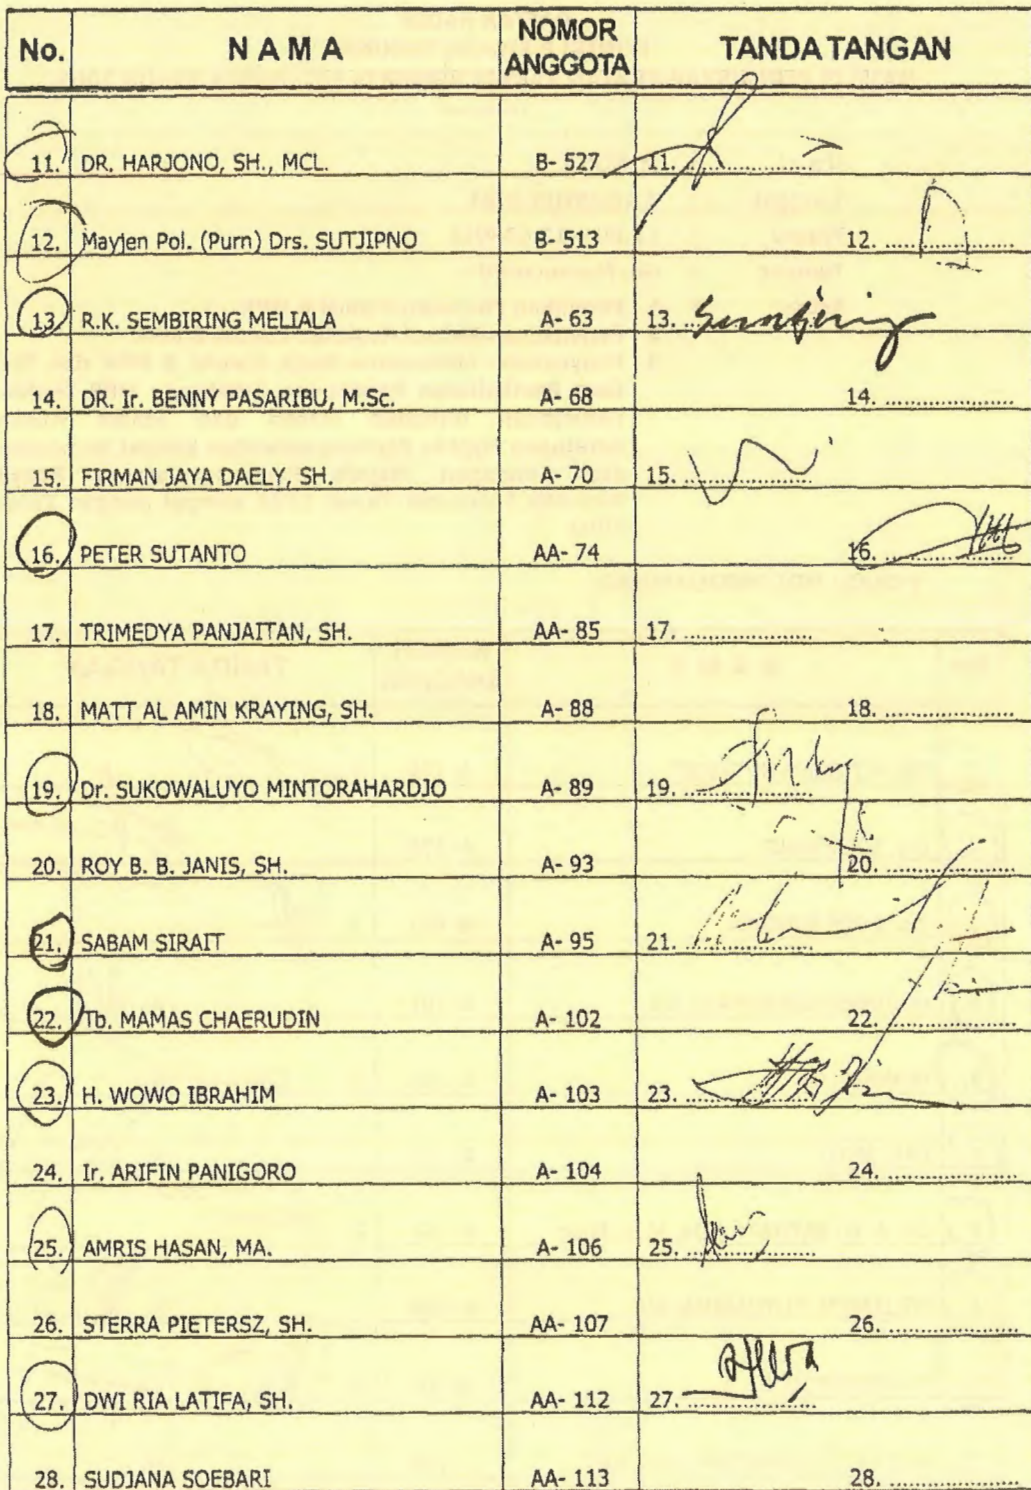 No. N A M A NOMOR ANGGOTA TANDA TANGAN
11. DR. HARJONO, SH., MCL. B- 527 11. ....................
12. Mayjen Pol. (Purn) Drs. SUTJIPNO B- 513 12. ....................
13. R.K. SEMBIRING MELIALA A- 63 13. Sembiring
14. DR. Ir. BENNY PASARIBU, M.Sc. A- 68 14. ....................
15. FIRMAN JAYA DAELY, SH. A- 70 15. ....................
16. PETER SUTANTO AA- 74 16. ....................
17. TRIMEDYA PANJAITAN, SH. AA- 85 17. ....................
18. MATT AL AMIN KRAYING, SH. A- 88 18. ....................
19. Dr. SUKOWALUYO MINTORAHARDJO A- 89 19. ....................
20. ROY B. B. JANIS, SH. A- 93 20. ....................
21. SABAM SIRAIT A- 95 21. ....................
22. Tb. MAMAS CHAERUDIN A- 102 22. ....................
23. H. WOWO IBRAHIM A- 103 23. ....................
24. Ir. ARIFIN PANIGORO A- 104 24. ....................
25. AMRIS HASAN, MA. A- 106 25. ....................
26. STERRA PIETERSZ, SH. AA- 107 26. ....................
27. DWI RIA LATIFA, SH. AA- 112 27. ....................
28. SUDJANA SOEBARI AA- 113 28. ....................